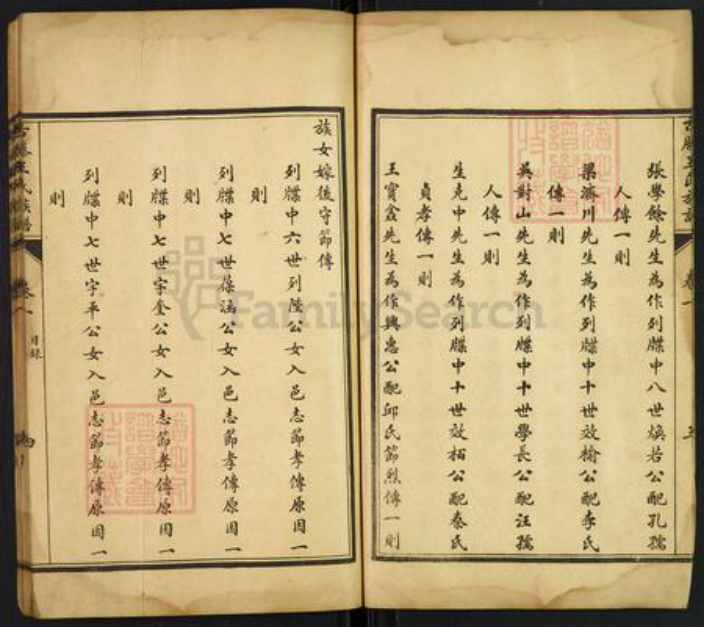 張學餘先生為作列牒中八世煥若公配孔孺
人傳一則
梁濟川先生為作列牒中十世效榆公配李氏
傳一則
吳對山先生為作列牒中十世學長公配汪孺
人傳一則
生克中先生為作列牒中十世效柏公配秦氏
貞孝傳一則
王寶鑫先生為作興惠公配邱氏節烈傳一則
族女嫁後守節傳
列牒中六世列陞公女入邑志節孝傳原因一
則
列牒中七世葆涵公女入邑志節孝傳原因一
則
列牒中七世字奎公女入邑志節孝傳原因一
則
列牒中七世字平公女入邑志節孝傳原因一
則
卷一
目錄
FamilySearch